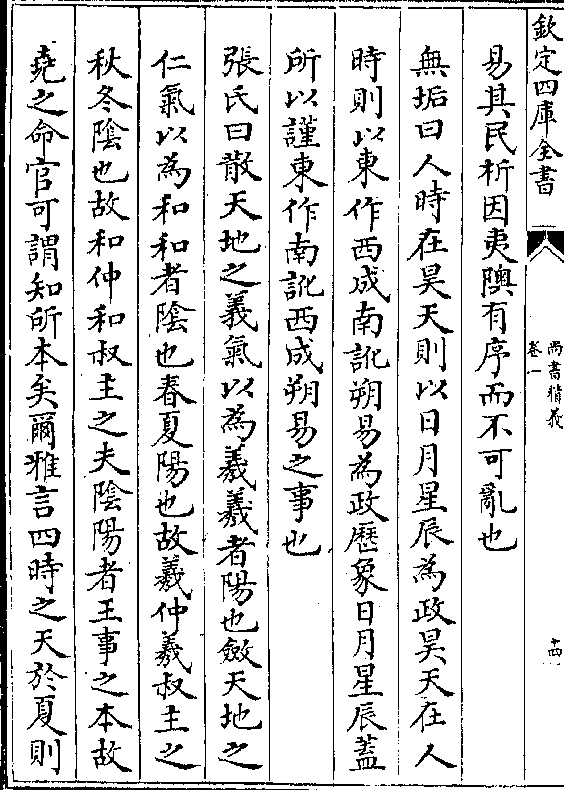 欽定四庫全書
尚書精義
卷一
十四
易其民析因夷隩有序而不可亂也
無垢曰人時在昊天則以日月星辰為政昊天在人
時則以東作西成南訛朔易為政歷象日月星辰蓋
所以謹東作南訛西成朔易之事也
張氏曰散天地之義氣以為羲羲者陽也斂天地之
仁氣以為和和者陰也春夏陽也故羲仲羲叔主之
秋冬陰也故和仲和叔主之夫陰陽者王事之本故
堯之命官可謂知所本矣爾雅言四時之天於夏則